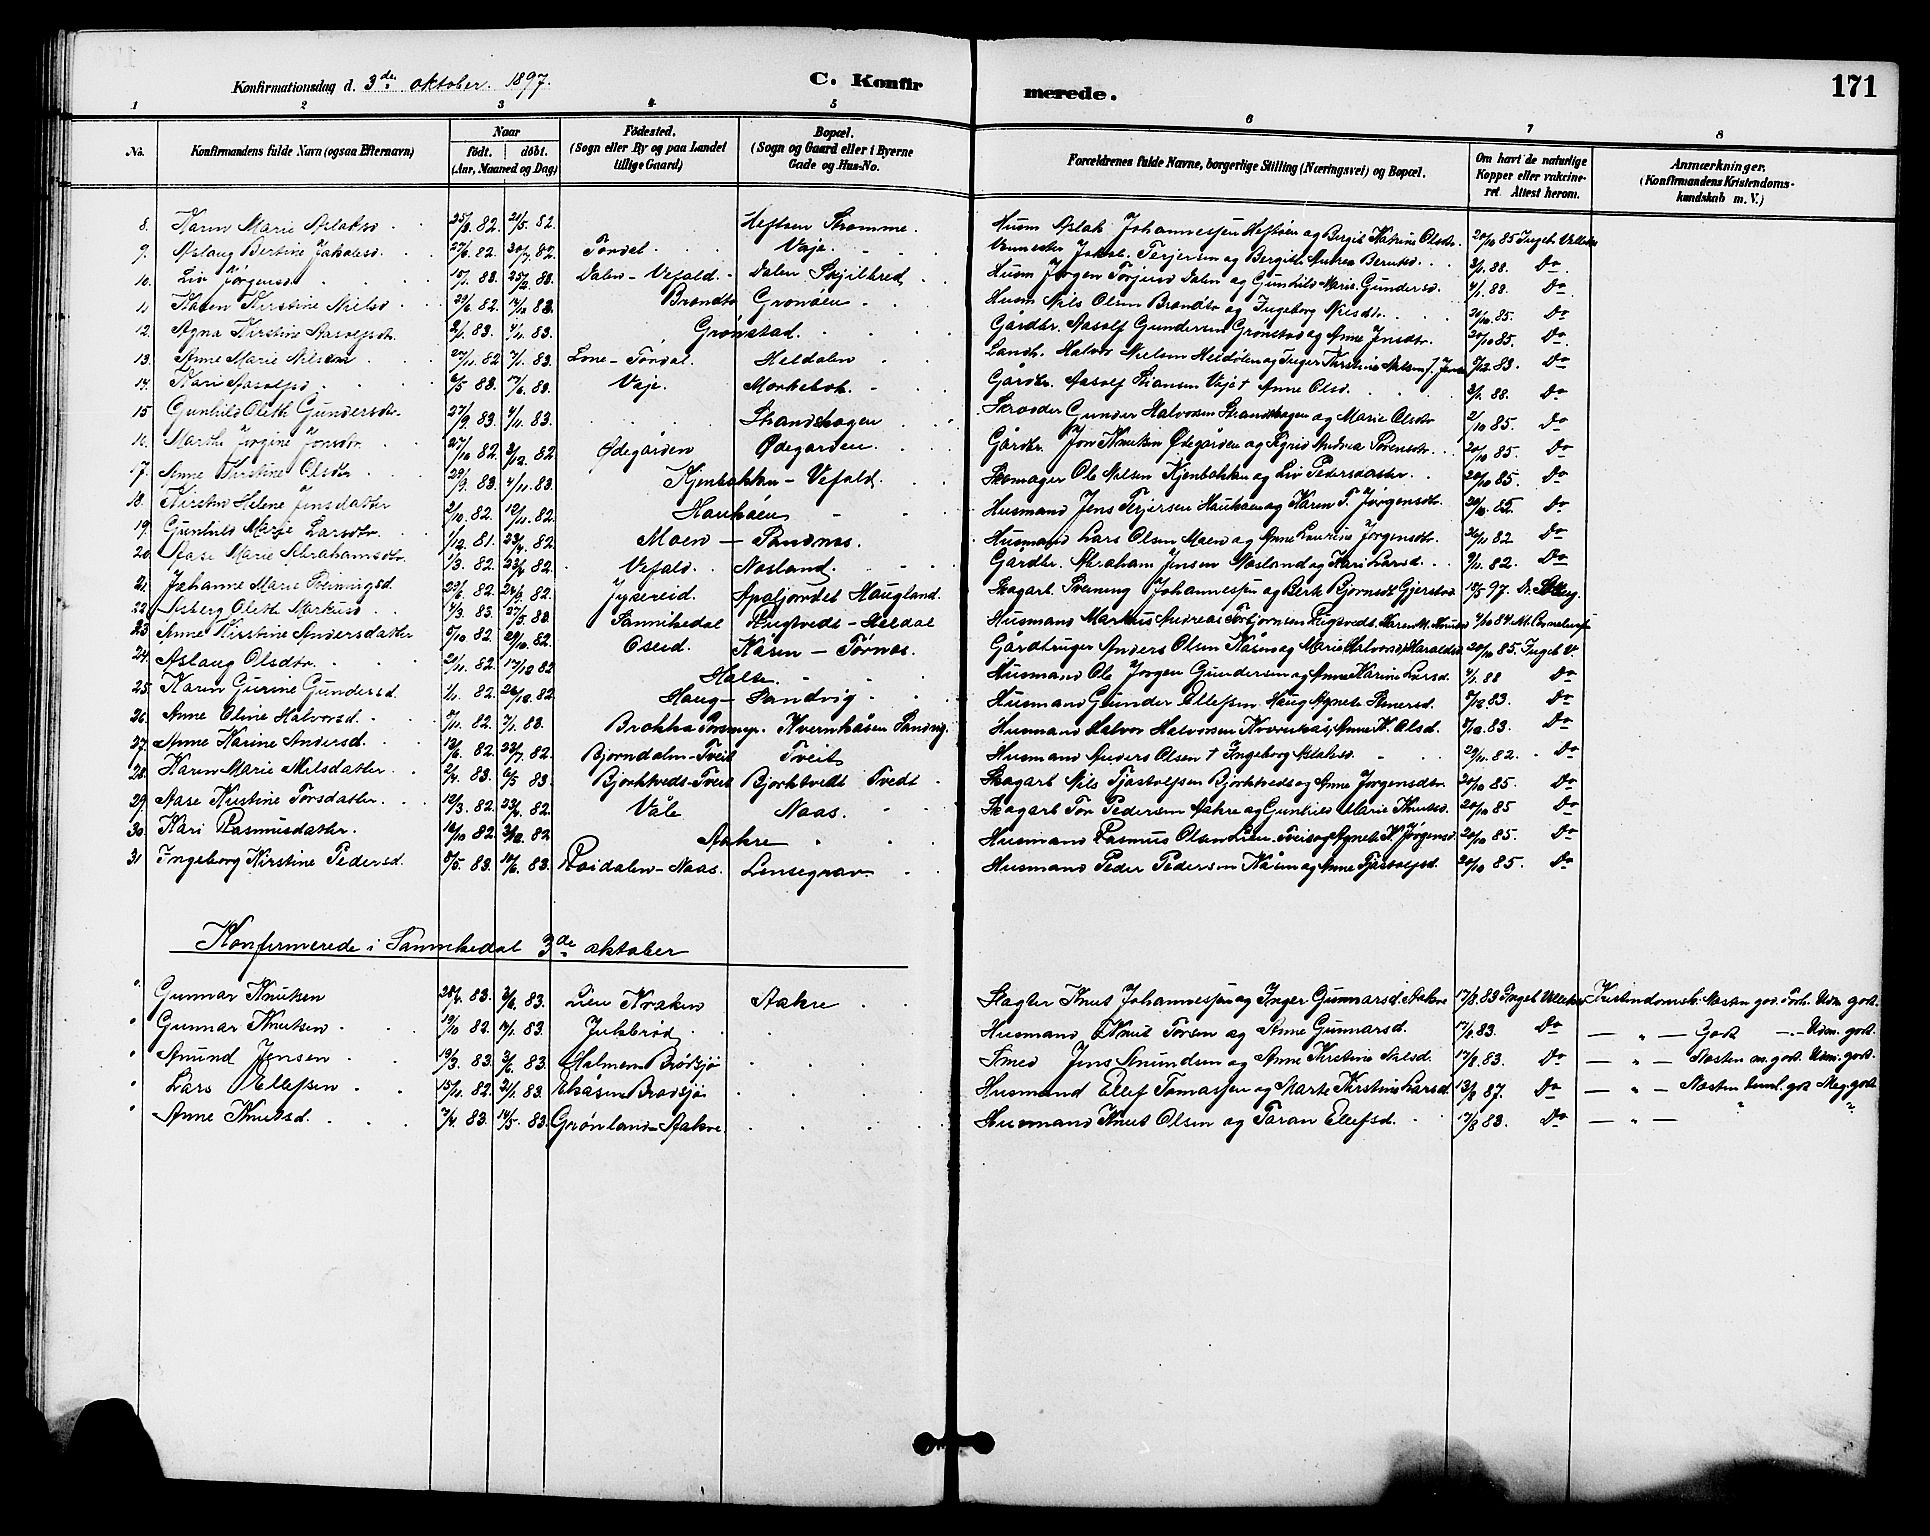 171
Konfirmationsdag d. 3de oktober 1897.
C. Konfirmerede.
1 2 3 4 5 6 7 8
No. Konfirmandens fulde Navn (ogsaa Efternavn) Naar født. døbt. (Aar, Maaned og Dag) Fødested. (Sogn eller By og paa Landet tillige Gaard) Bopæl. (Sogn og Gaard eller i Byerne Gade og Hus-No. Forældrenes fulde Navne, borgerlige Stilling (Næringsvei) og Bopæl. Om havt de naturlige Kopper eller vakcineret. Attest herom. Anmærkninger. (Konfirmandens Kristendomskundskab m. V.)
8. Karen Marie Aslaksd. 25/3 82. 21/5 82. Heftøen Strømme. Husm Aslak Johannessen Heftøen og Bergit Katrine Olsdtr. 20/10 85
9. Aslaug Bertine Jakobsd. 27/6 82. 30/7 82. Tørdal. Vaje. Jakob Terjersen og Bergit Andrea Berntsd. 3/1 88. Do
10. Liv Jørgensd. 15/1 83. 25/2 83. Dalen - Vefald - Dalen Skjilbred Husm Jørgen Torjusd Dalen og Gunhild Marie Gundersd. 4/1 88. Do
11 Karen Kirstine Nielsd 29/6 82. Brandtr Grønåen Husm Nils Olsen Brandtr og Ingeborg Nilsdtr. 20/10 85. Do
12. Agna Kirstine Aasolfsdtr 2/1 83. 4/11 83. Grønstad. Gårdbr. Aasolf Gundersen Grønstad og Anne Jensdtr. 20/10 85. Do
13. Anne Marie Nilsen 27/11 82 7/1 83. Lone - Tørdal. Heldalen Landh. Halvor Nielsen Heldalen og Inger Kirstine Nilsen 5/12 83. Do
14. Kari Aasolfsd. 6/5 83. 17/6 83. Vaje. Mørkebek. Gårdbr. Aasolf Stiansen Vaje † Anne Olsd. 3/1 88. Do
15 Gunhild Oleth Gundersdtr. 27/9 83. 4/11 83. Strandhagen Skrædder Gunder Halvorsen Strandhagen og Marie Olsdtr 2/10 85. Do
16. Marthe Jørgine Jonsdtr. 27/10 82. 3/12 82. Ødegården Ødegarden. Gårdbr. Jon Knutsen Ødegården og Sigrid Andrea Sørensdtr. 20/10 85. Do
17. Anne Kirstine Olsdtr 29/9 83. 4/11 83. Kjenbakken - Vefald. Skomager Ole Nilsen Kjenbakken og Liv Pedersdatter. 20/10 85. Do
18. Kirsten Helene Jensdatter 2/10 82. 12/11 82. Haukåen Husmand Jens Terjersen Haukaen og Karen T. Jørgensdtr. 20/10 85. Do
19. Gunhild Marie Larsdtr. 1/12 81. 23/4 82. Moen - Sandnæs. Husmand Lars Olsen Moen og Anne Laurine Jørgensdtr. 26/11 82 Do
20. Aase Marie Abrahamsdtr 1/3 82. 23/4 82. Vefald. Næsland. Gårdbr. Abraham Jensen Næsland og Kari Larsd. 9/11 82. Do
21. Johanne Marie Preiningsd 29/6 82. 24/9 82. Jysereid. Apaljordet Haugland. Skogarb Preining Johannessen og Berte Bjørnsdtr Gjerstad 18/5 97.
22. Asberg Oleth Markusd. 14/3 83. 27/5 83. Sannikedal Rugtvedt - Heldal Husmand Markus Andreas Torbjørnsen Rugtvedt, Karen M. Knutsd 4/10 84
23. Anne Kirstine Andersdatter 5/10 82. 29/10 82. Oseid. Kåsen - Tørnæs. Gårdbruger Anders Olsen Kåsen og Marie Halvorsd. Haraldsd 20/10 85. Ingeb V.
24. Aslaug Olsdtr. 2/11 82. 17/12 82 Halse. Husmand Ole Jørgen Gundersen og Anne Karine Larsd. 4/1 88 Do
25. Karen Gurine Gundersd. 1/11 82. 26/12 82. Haug - Sandvig Husmand Gunder Ellefsen Haug Agnete Stenersd. 5/12 83. Do
26. Anne Oline Halvorsd. 5/11 82. 7/1 83. Brokka Kvernhåsen Sandvig. Husmand Halvor Halvorsen Kvernkås, Anne K. Olsd. 5/12 83. Do
27. Anne Karine Andersd. 12/6 82. 23/7 82. Bjørndalen - Tveit Tveit Husmand Anders Olsen † Ingeborg Aslaksd. 29/11 82. Do
28. Karen Marie Nilsdatter. 2/4 83. 6/5 83. Bjørktvedt - Tveit Bjorktvedt Tvedt Skogarb Nils Tjøstolfsen Bjørktvedt og Anne Jørgensdtr. 20/10 85. Do
29. Aase Kirstine Torsdatter. 12/3 82. 23/4 82. Våle Naas. Skogarb Tor Pedersen Aakre og Gunhild Marie Knutsd. 20/10 85 Do
30. Kari Rasmusdatter. 16/10 82. 3/12 82. Aakre Husmand Rasmus Olsen Lien Tveit og Agnete K. Jørgensd. 20/10 85. Do
31. Ingeborg Kirstine Pedersd. 5/5 83. 10/6 83. Roidalen - Naas. Lensegrav Husmand Peder Pedersen Kåsen og Anne Tjøstolfsd. 20/10 85. Do
Konfirmerede i Sannikedal 3de oktober
Gunnar Knutsen 28/4 83. 3/6 83. Lien Kroken Aakre Slagter Knut Johannessen og Inger Gunnarsd. Aakre 17/8 83 Ingeb Kristendomsk. Næsten god. Forh. Udm. god.
Gunnar Knutsen 19/10 82. 14/1 83. Julsbrød Husmand Knut Torsen og Anne Gunnarsd. 17/8 83. Do — " — God — - Udm. god.
Anund Jensen 19/3 83. 3/6 83. Holmen Brødsjø Smed Jens Anundsen og Anne Kirstine Nilsd. 17/8 83. Do — " — Næsten m. god. Udm. god.
Lars Ellefsen 15/11 82. 21/1 83. Ekåsen Brødsjø Husmand Ellef Tomassen og Marte Kirstine Larsd. 13/8 87. Do — " — Næsten teml. god Meg. god.
Anne Knutsd. 7/4 83. 14/5 83. Grønland - Aakre. Husmand Knut Olsen og Taran Ellefsd. 17/8 83. Do — " — " "